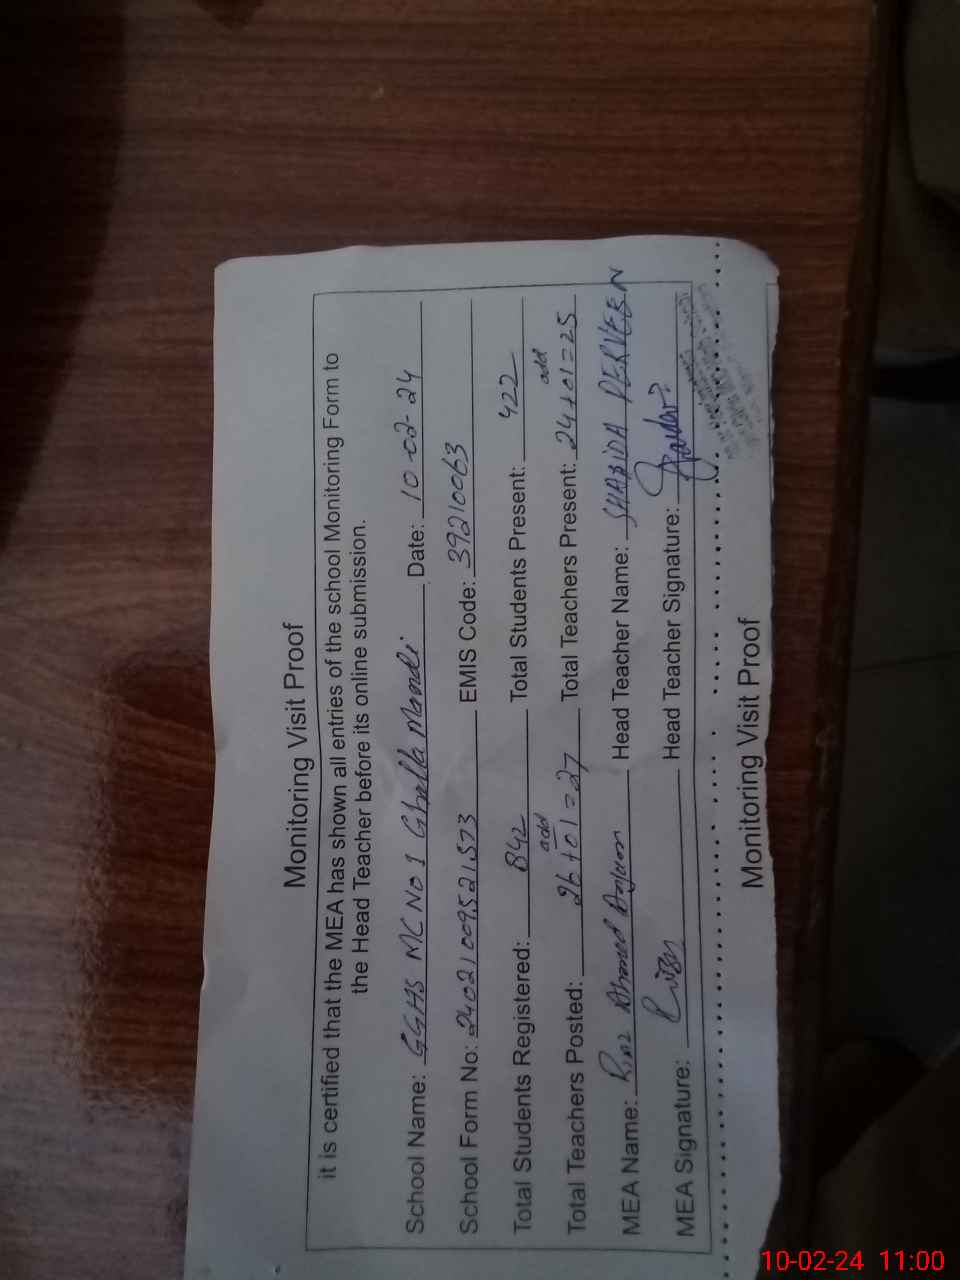 Monitoring Visit Proof
it is certified that the MEA has shown all entries of the school Monitoring Form to
the Head Teacher before its online submission.
School Name: GGHS MC NO 1 Ghalla Mandi. Date: 10-02-24
School Form No: 24021009521573 EMIS Code: 39210063
Total Students Registered: 842 Total Students Present: 422
add add
Total Teachers Posted: 26+01=27 Total Teachers Present: 24+01=25
MEA Name: Riaz Ahmed Anjum Head Teacher Name: SHAHIDA PERVEEN
MEA Signature: Head Teacher Signature:
Monitoring Visit Proof
10-02-24 11:00